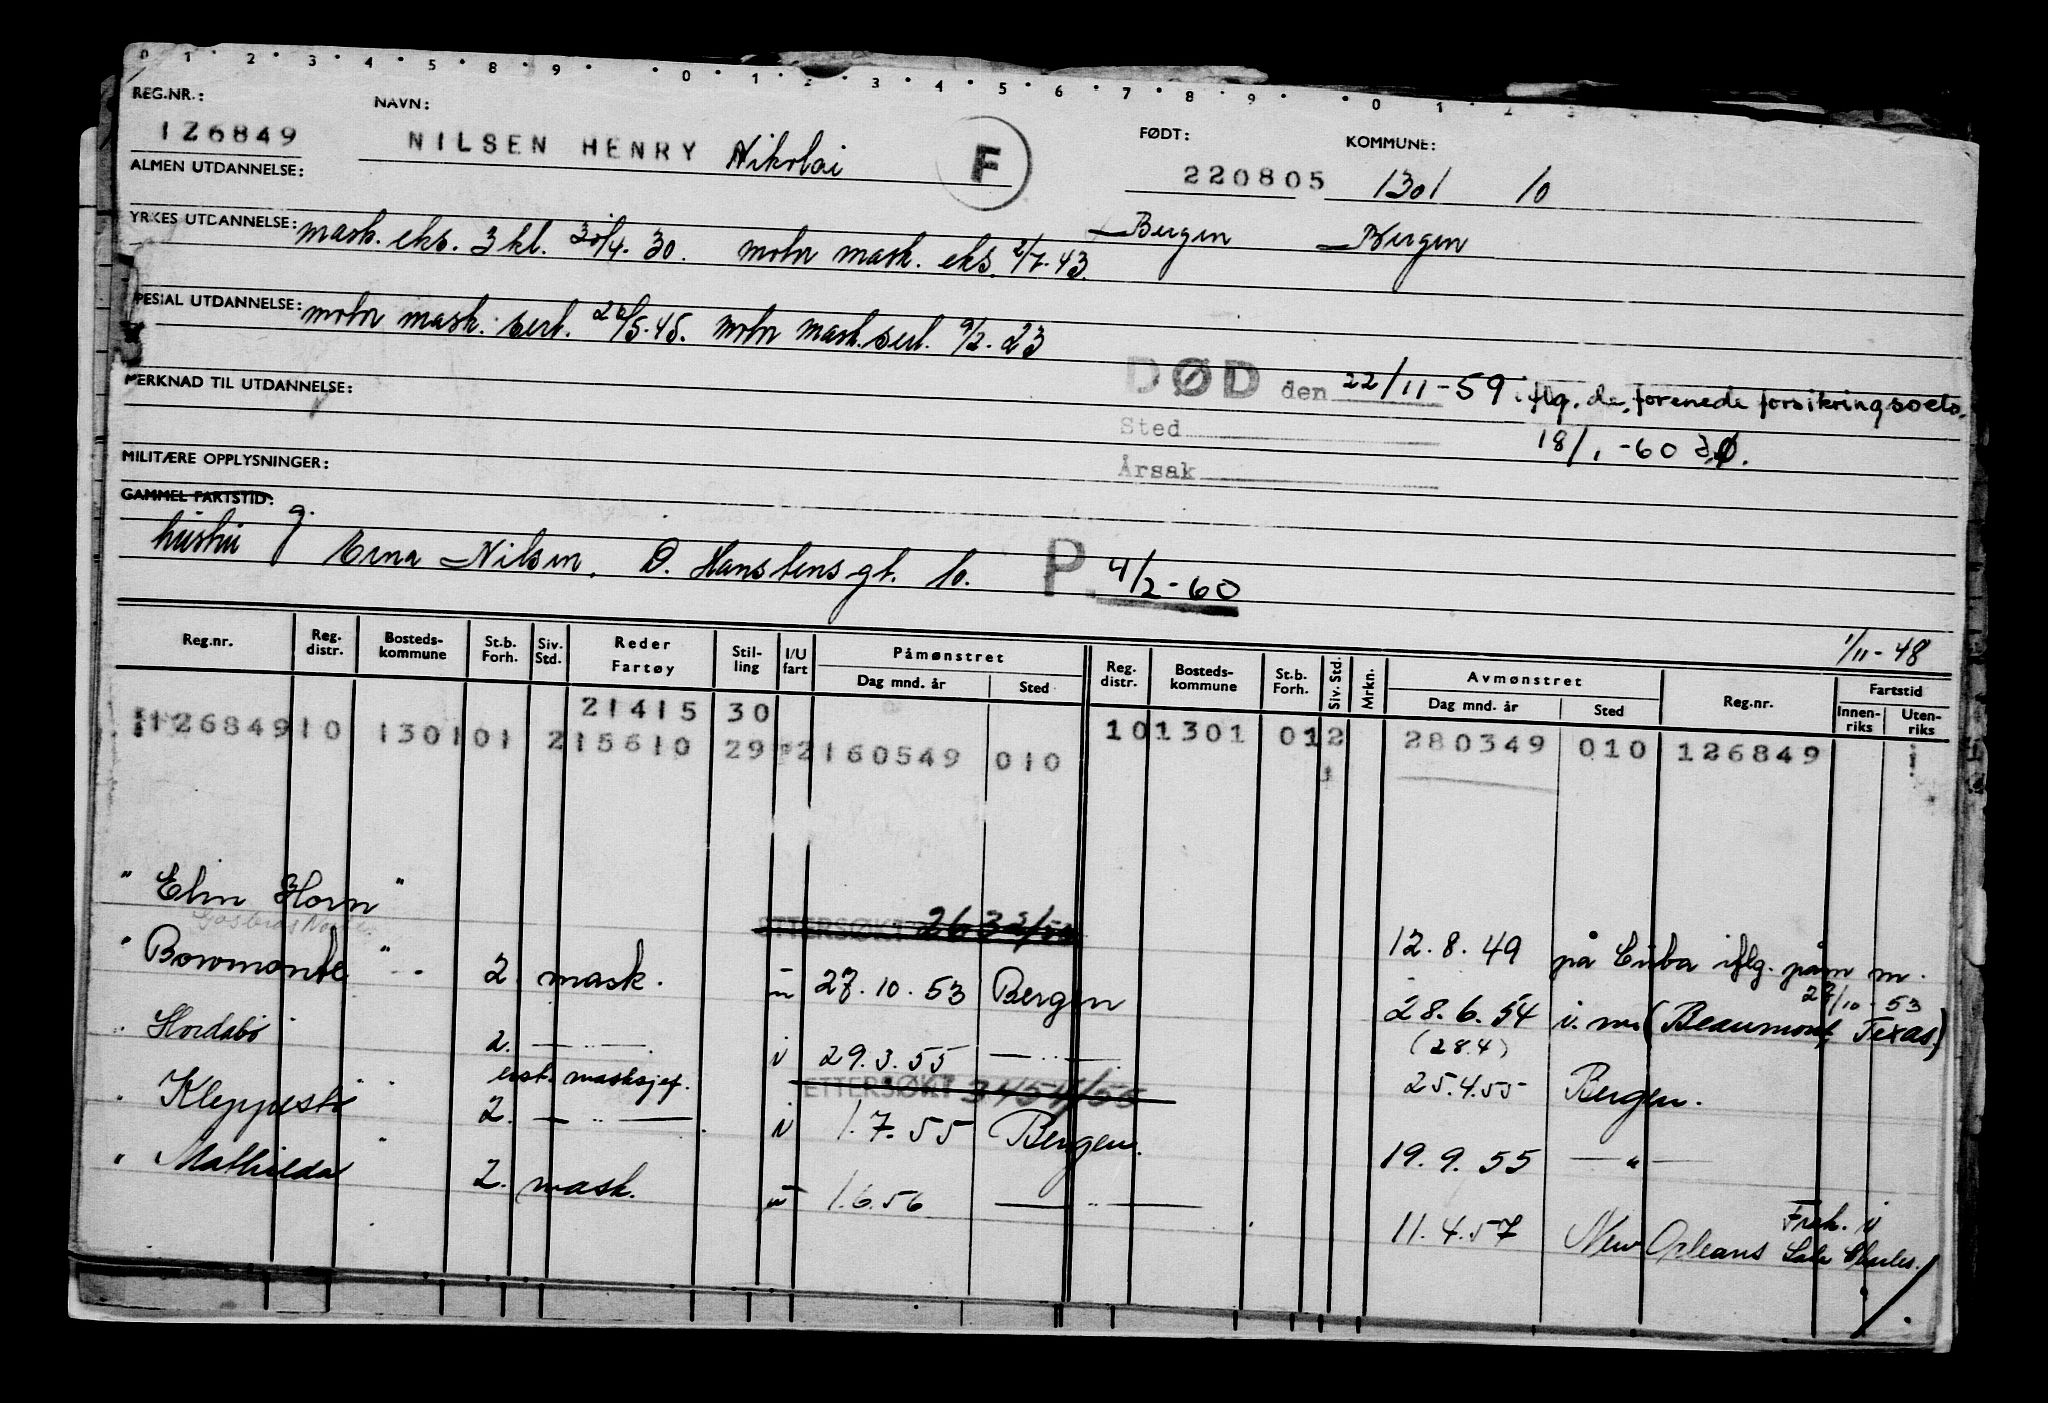 0 1 2 3 4 5 8 9 0 1 2 3 4 5 6 7 8 9 0 1 2 3
REG.NR.: NAVN: FØDT: KOMMUNE:
126849 NILSEN HENRY Nikolai F 220805 1301 10
ALMEN UTDANNELSE:
YRKES UTDANNELSE: mask. eks. 3 kl. 30/4. 30. motor mask. eks. 2/7. 43. Bergen Bergen
SPESIAL UTDANNELSE: motor mask. sert. 26/5.45. motor mask. sert. 9/2. 23
MERKNAD TIL UTDANNELSE: DØD den 22/11-59 iflg. de forenede forsikringsoets.
Sted 18/1-60 DØ.
MILITÆRE OPPLYSNINGER: Årsak
GAMMEL FARTSTID: g.
hustru Erna Nilsen, D. Hanstensgt. 10. P. 4/2-60
1/11-48
Reg.nr. Reg. distr. Bosteds-kommune St.b. Forh. Siv. Std. Reder Fartøy Stil-ling I/U fart Påmønstret Dag mnd. år Sted Reg. distr. Bosteds-kommune St.b. Forh. Siv. Std. Mrkn. Avmønstret Dag mnd. år Sted Reg.nr. Fartstid Innen-riks Uten-riks
21415 30 10 1301 01 2 280349 010 126849
126849 10 1301 01 2 15610 29 2 160549 010
" Elin Horn "
ETTERSØKT 26 3 12.8.49 på Cuba iflg. påm m. 27/10-53
" Bowmonte " 2. mask. u 27.10.53 Bergen 28.6.54 i. m. (Beaumont, Texas)
(28.4)
" Hordabø 2. — " — i 29.3.55 — " — 25.4.55 Bergen.
ETTERSØKT 3454/55
asst. masksjef.
" Kleppestø " 2. — " — i 1.7.55 Bergen. 19.9.55 — " —
" Mathilda " 2. mask. u 1.6.56 — " — 11.4.57 New Orleans Frak. i Lake Charles.